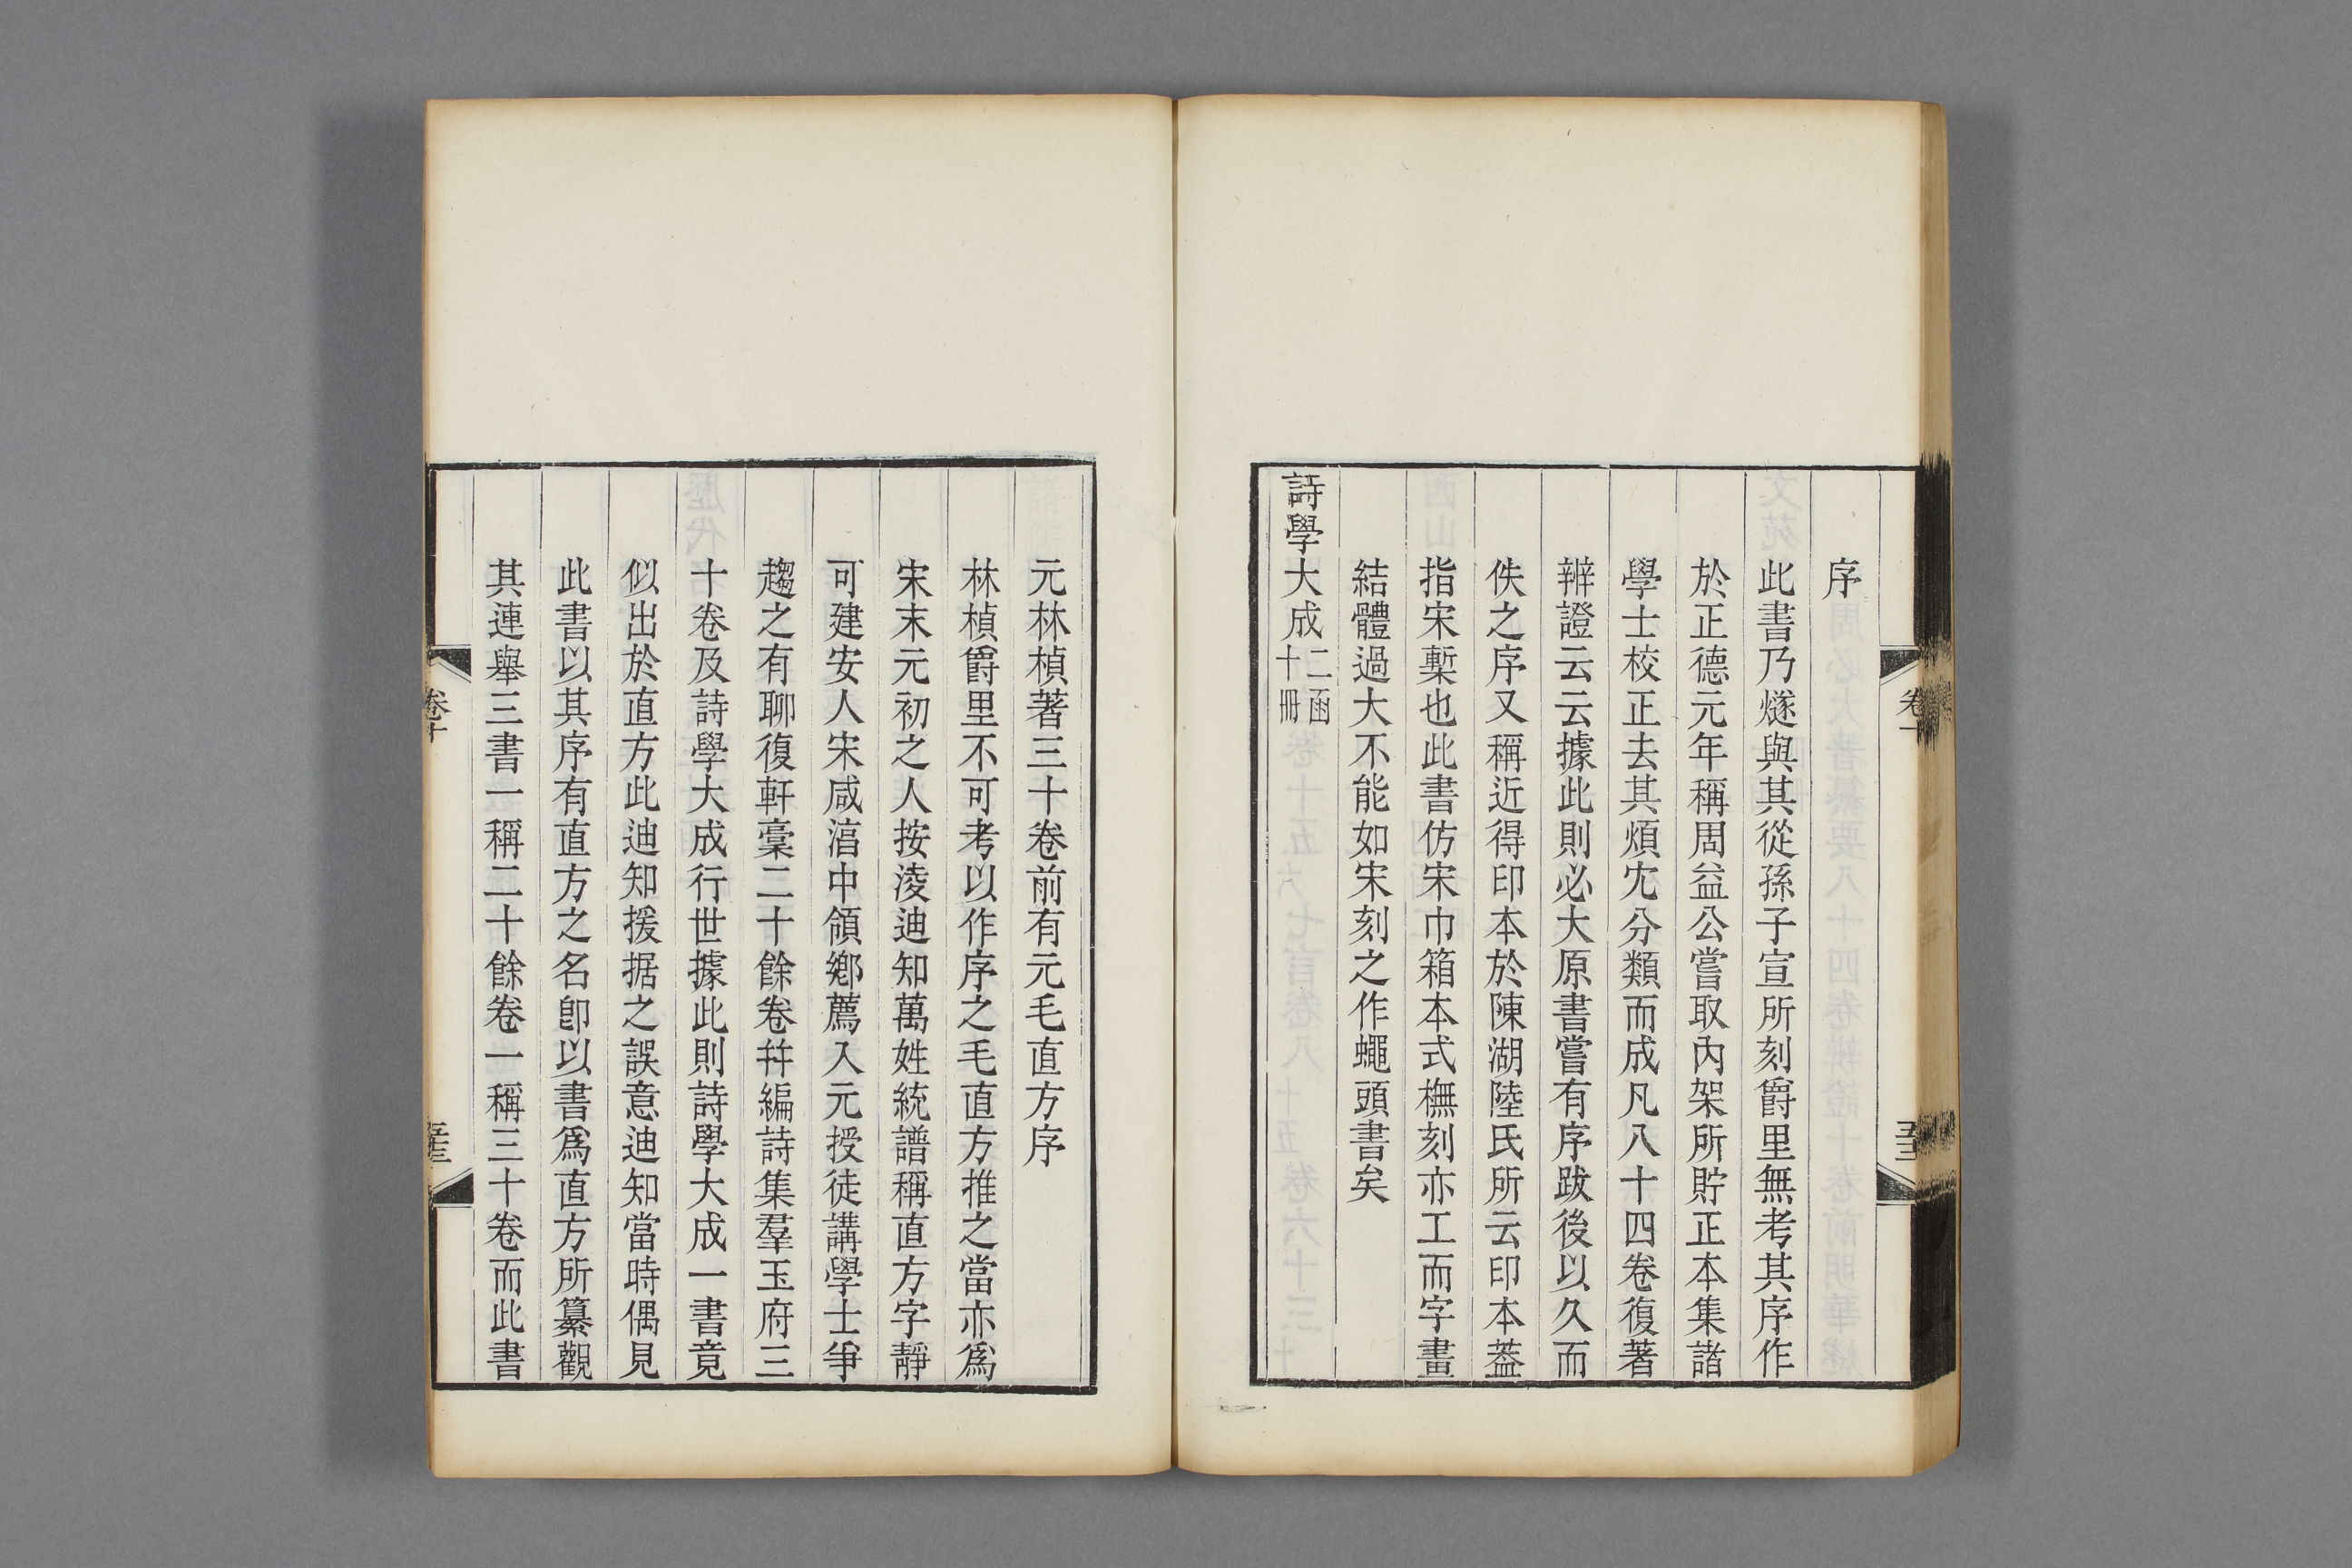 序
此書乃燧與其從孫子宣所刻爵里無考其序作
於正德元年稱周益公嘗取內架所貯正本集諸
學士校正去其煩冘分類而成凡八十四卷復著
辨證云云據此則必大原書嘗有序跋後以久而
佚之序又稱近得印本於陳湖陸氏所云印本葢
指宋槧也此書仿宋巾箱本式橅刻亦工而字畫
結體過大不能如宋刻之作蠅頭書矣
詩學大成二函十冊
元林楨著三十卷前有元毛直方序
林楨爵里不可考以作序之毛直方推之當亦爲
宋末元初之人按淩迪知萬姓統譜稱直方字靜
可建安人宋咸湻中領鄉薦入元授徒講學士爭
趨之有聊復軒稾二十餘卷幷編詩集羣玉府三
十卷及詩學大成行世據此則詩學大成一書竟
似出於直方此迪知援据之誤意迪知當時偶見
此書以其序有直方之名卽以書爲直方所纂觀
其連舉三書一稱二十餘卷一稱三十卷而此書